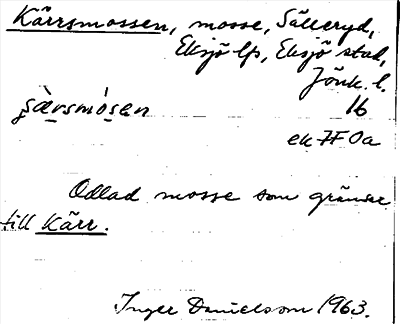 Kärrsmossen, mosse, Sälleryd,
Eksjö lfs, Eksjö stad,
Jönk. l.
16
ek 7F 0a
Odlad mosse som gränsar
till Kärr.
Inger Danielsson 1963.